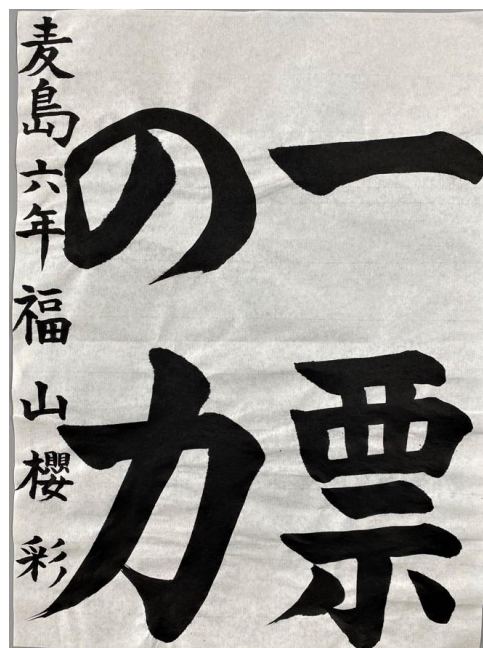 一票
の力
麦島六年福山櫻彩